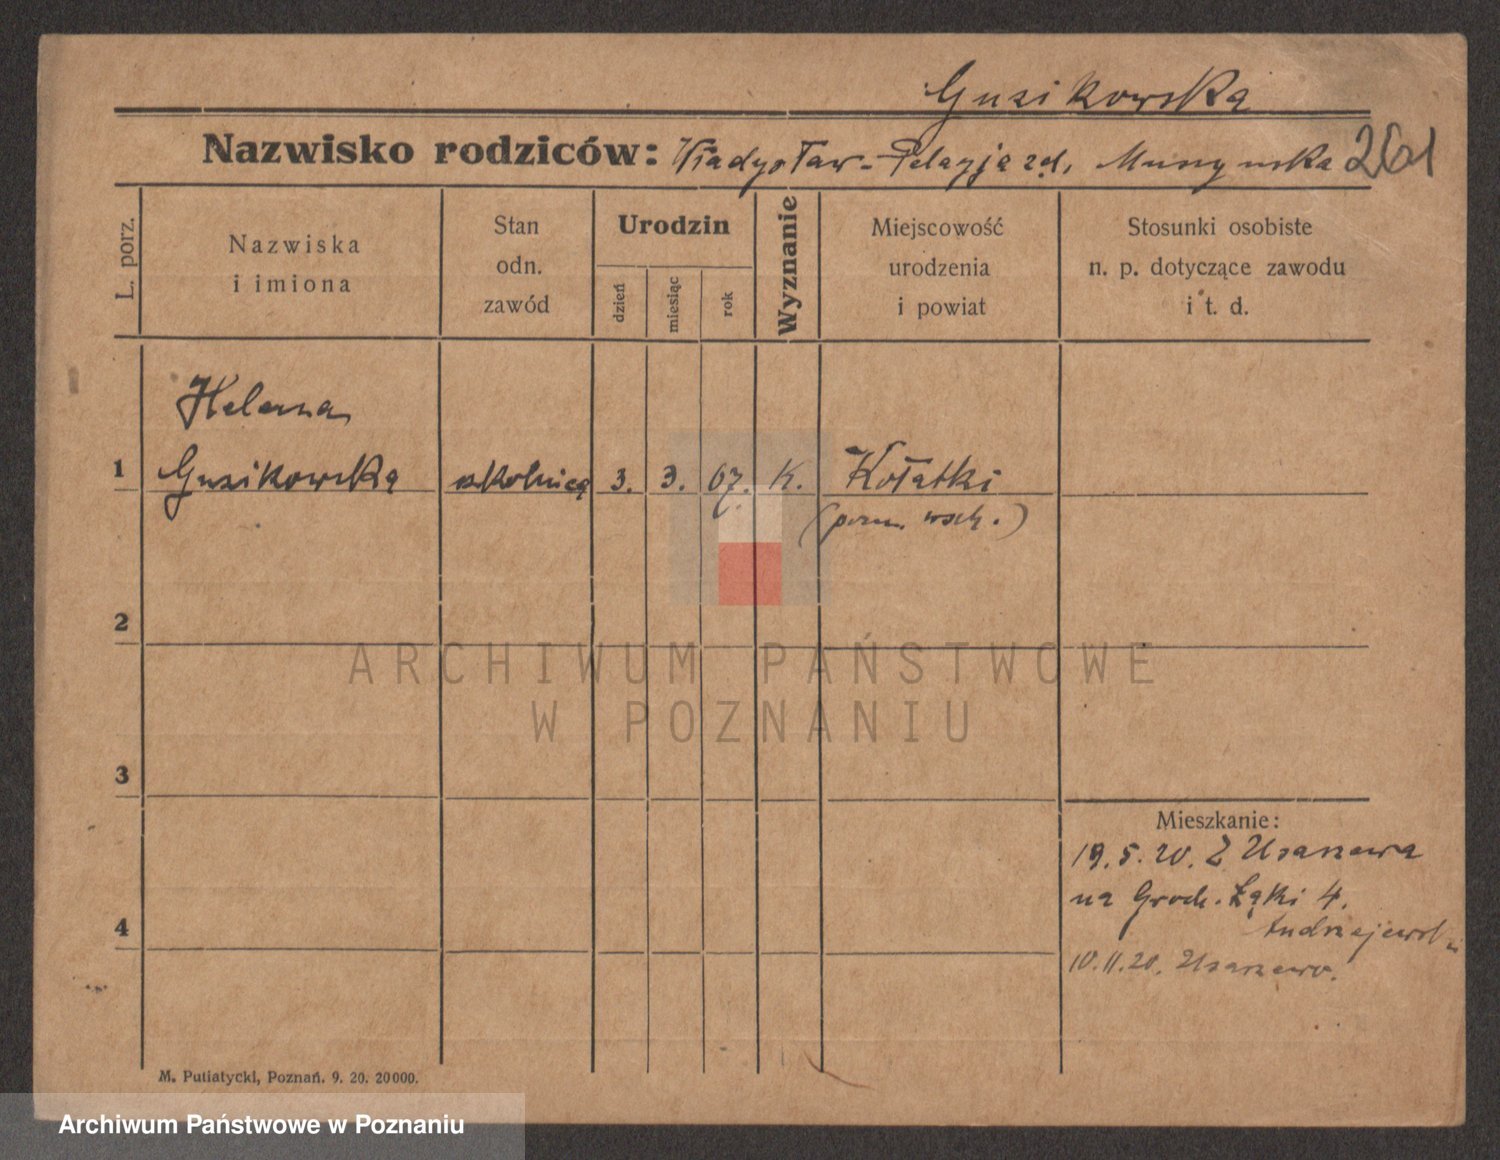 Guzikowska
Nazwisko rodziców: Władysław - Pelagja zd. Muszynska 261
L. porz.
Nazwiska
i imiona
Stan
odn.
zawód
Urodzin
dzień
miesiąc
rok
Wyznanie
Miejscowość
urodzenia
i powiat
Stosunki osobiste
n. p. dotyczące zawodu
i t. d.
Helena
1 Guzikowska szkolnica 3. 3. 07. K. Kołatki
(pozn. wsch.)
2
3
4
Mieszkanie:
19.5.20. Z Uzarzewa
na Groch. Łąki 4.
Andrzejewski
10.11.20. Uzarzewo.
M. Putiatycki, Poznań. 9. 20. 20000.
ARCHIWUM PAŃSTWOWE
W POZNANIU
Archiwum Państwowe w Poznaniu